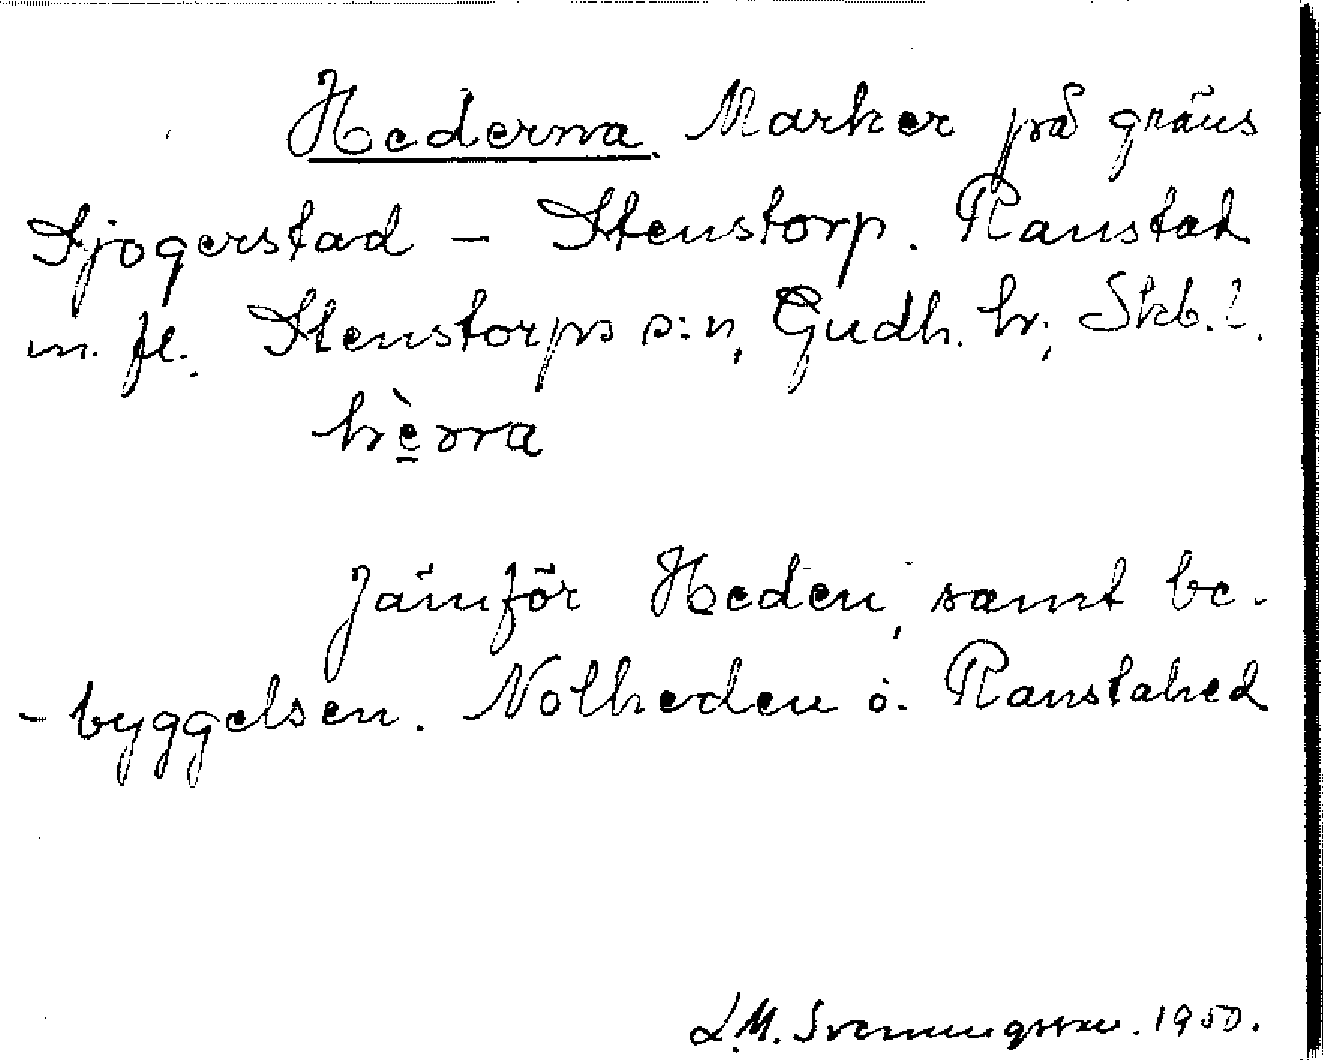 Hederna. Marker på gräns
Sjogerstad - Stenstorp. Ranstad
m. fl. Stenstorps s:n, Gudh. hr; Skb. l.
hèrra
Jämför Heden, samt be-
-byggelsen. Nolheden o. Ranstahed
L.M. Svenungsson. 1950.